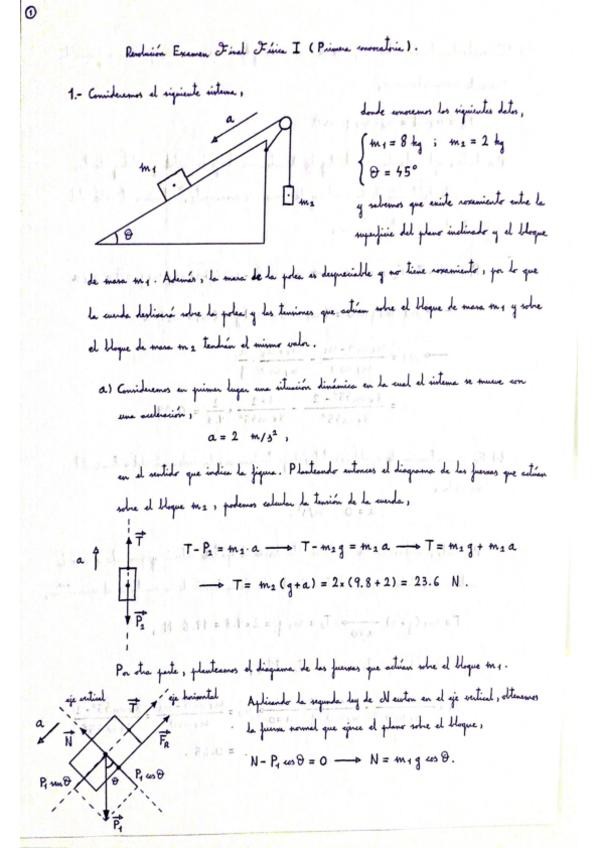 1
Resolución Examen Final Física I (Primera convocatoria).
1.- Consideremos el siguiente sistema,
donde conocemos los siguientes datos,
m1 = 8 kg ; m2 = 2 kg
θ = 45°
a
m1
m2
θ
y sabemos que existe rozamiento entre la
superficie del plano inclinado y el bloque
de masa m1. Además, la masa de la polea es despreciable y no tiene rozamiento, por lo que
la cuerda deslizará sobre la polea y las tensiones que actúan sobre el bloque de masa m1 y sobre
el bloque de masa m2 tendrán el mismo valor.
a) Consideremos en primer lugar una situación dinámica en la cual el sistema se mueve con
una aceleración,
a = 2 m/s²,
en el sentido que indica la figura. Planteando entonces el diagrama de las fuerzas que actúan
sobre el bloque m2, podemos calcular la tensión de la cuerda,
a
T
P2
T - P2 = m2·a → T - m2g = m2a → T = m2g + m2a
→ T = m2(g+a) = 2x(9.8+2) = 23.6 N.
Por otra parte, planteamos el diagrama de las fuerzas que actúan sobre el bloque m1.
eje vertical
eje horizontal
a
N
T
FR
P1 senθ
θ
P1 cosθ
P1
Aplicando la segunda ley de Newton en el eje vertical, obtenemos
la fuerza normal que ejerce el plano sobre el bloque,
N - P1 cosθ = 0 → N = m1g cosθ.